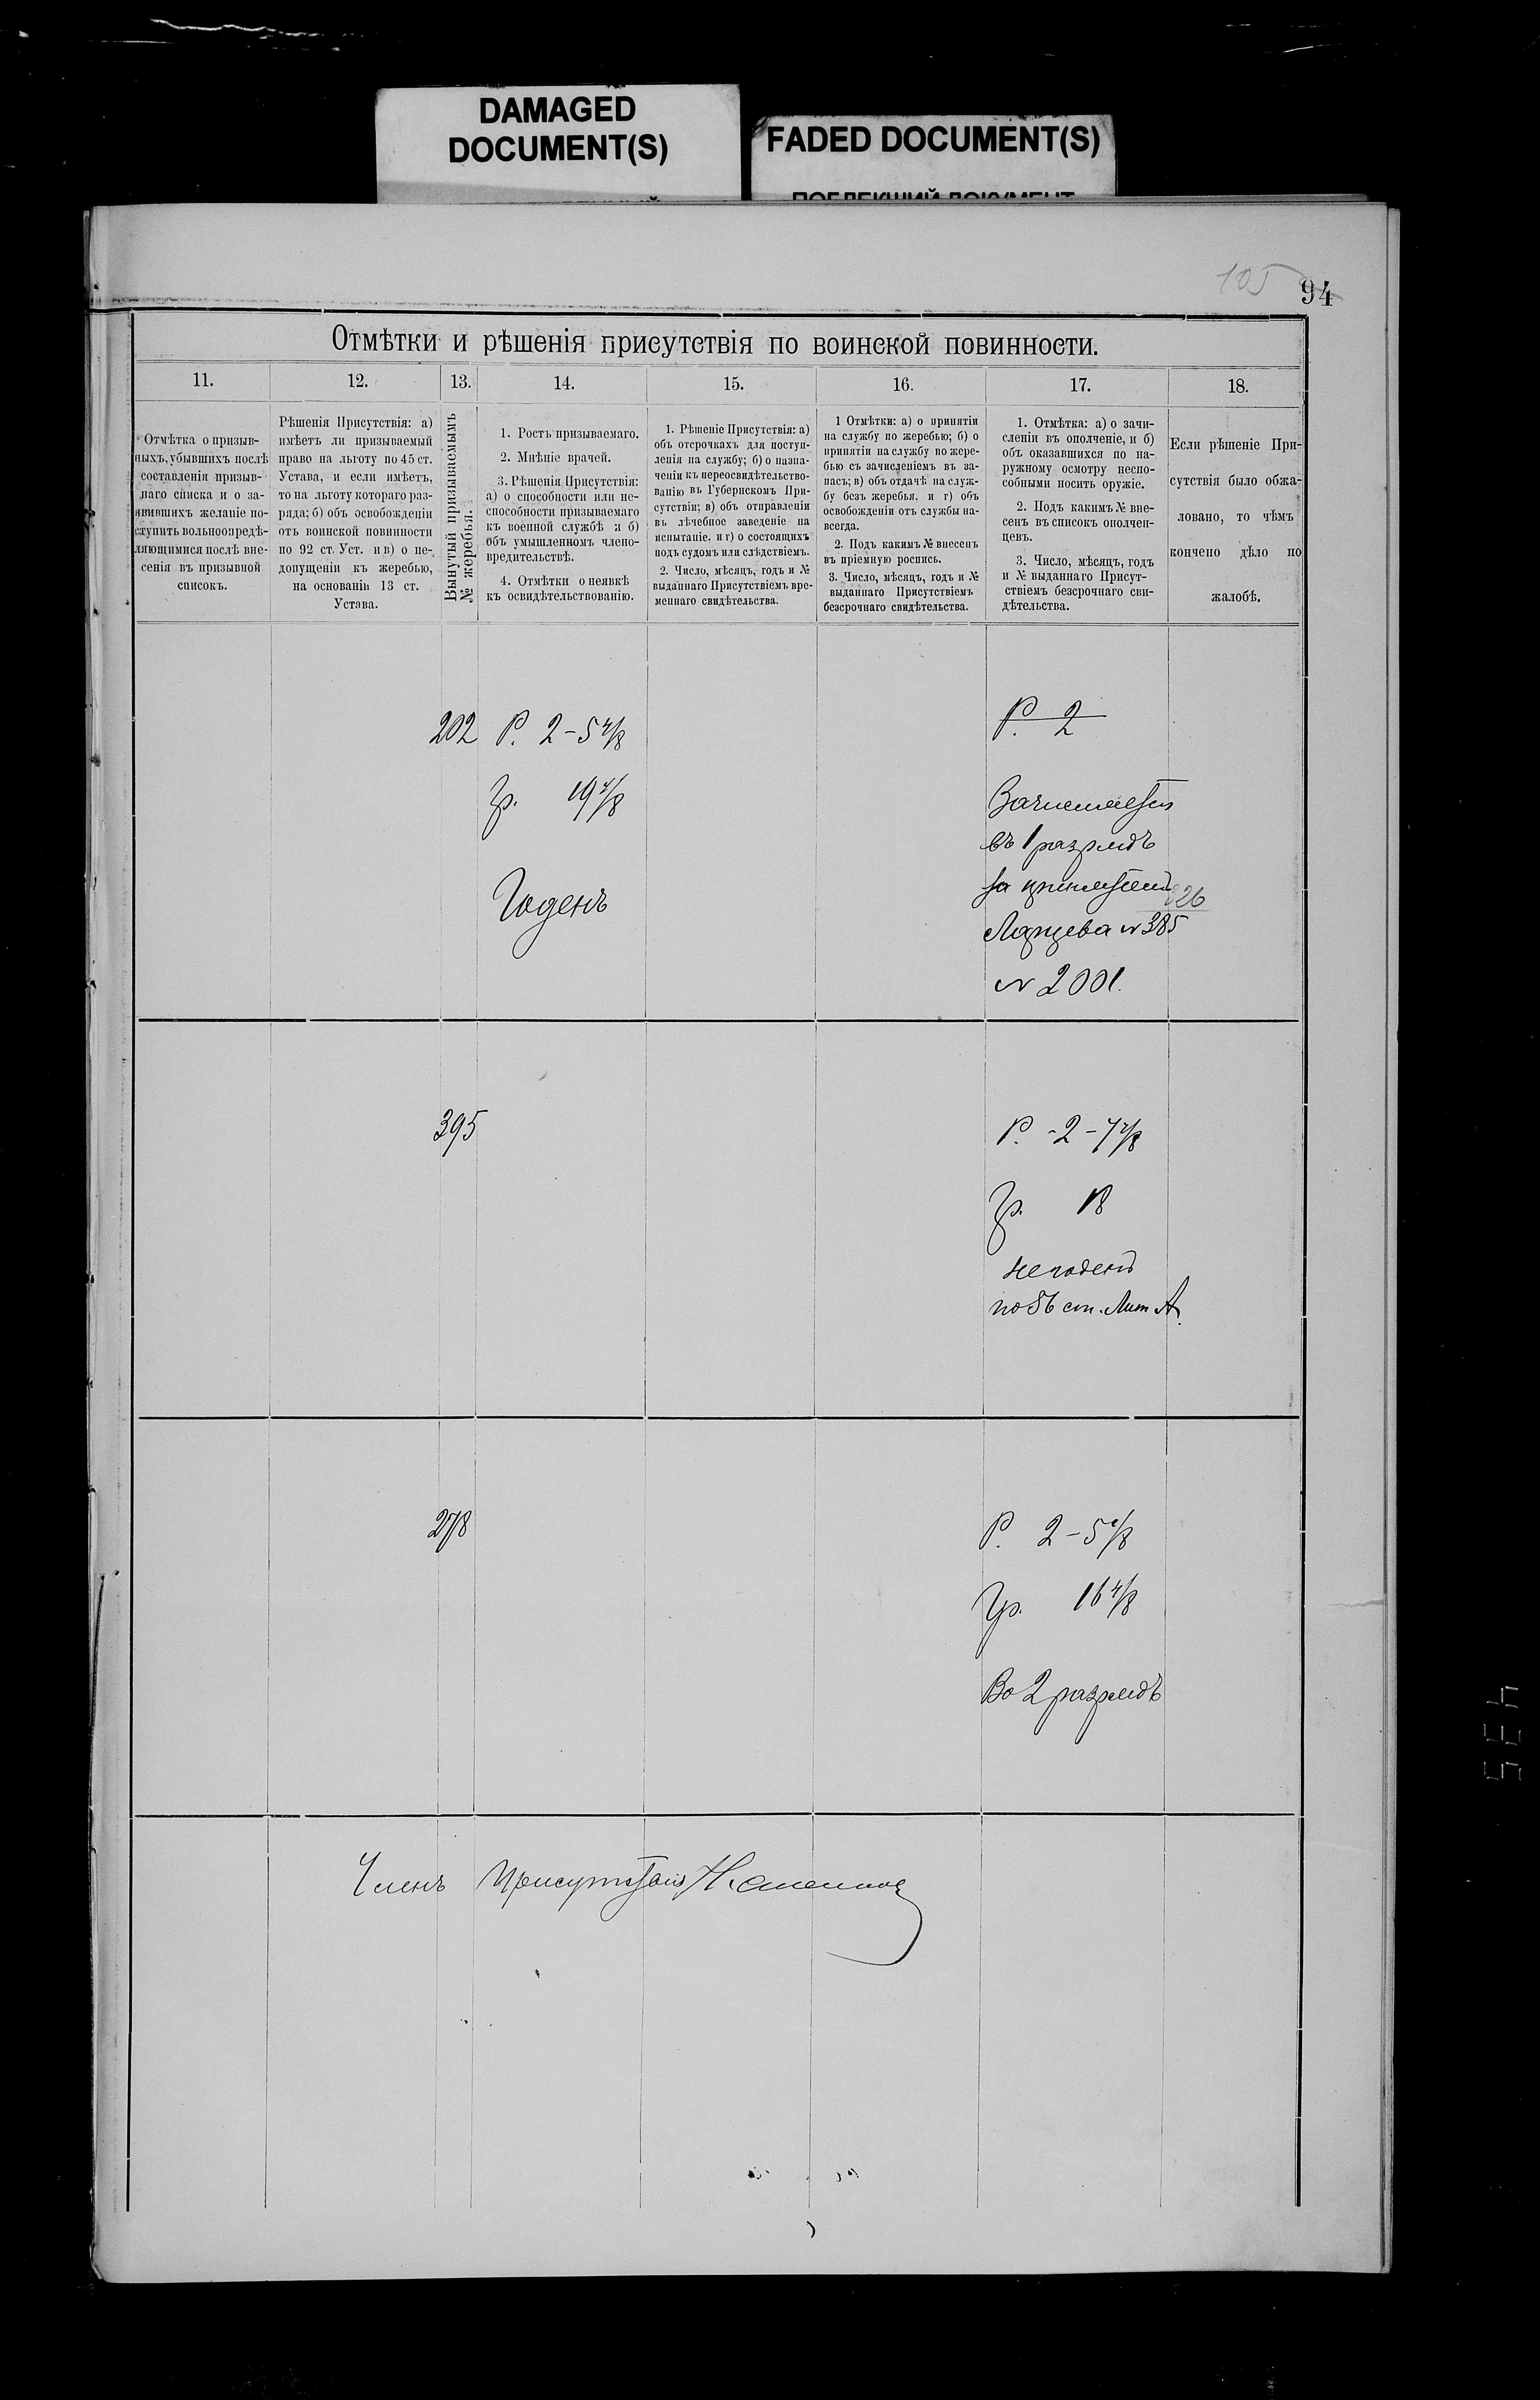 DAMAGED
DOCUMENT(S)
FADED DOCUMENT(S)
ПОБЛЕКШИЙ ДОКУМЕНТ
105
94
Отмѣтки и рѣшенія присутствія по воинской повинности.
11.
12.
13.
14.
15.
16.
17.
18.
Отмѣтка о призыв-
ныхъ, убывшихъ послѣ
составленія призыв-
наго списка и о за-
явившихъ желаніе по-
ступить вольноопредѣ-
ляющимися послѣ вне-
сенія въ призывной
списокъ.
Рѣшенія Присутствія: а)
имѣетъ ли призываемый
право на льготу по 45 ст.
Устава, и если имѣетъ,
то на льготу котораго раз-
ряда; б) объ освобожденіи
отъ воинской повинности
по 92 ст. Уст. и в) о не-
допущеніи къ жеребью,
на основаніи 13 ст.
Устава.
Вынутый призываемымъ
№ жеребья.
1. Ростъ призываемаго.
2. Мнѣніе врачей.
3. Рѣшенія Присутствія:
а) о способности или не-
способности призываемаго
къ военной службѣ и б)
объ умышленномъ члено-
вредительствѣ.
4. Отмѣтки о неявкѣ
къ освидѣтельствованію.
1. Рѣшеніе Присутствія: а)
объ отсрочкахъ для поступ-
ленія на службу; б) о назна-
ченіи къ переосвидѣтельство-
ванію въ Губернскомъ При-
сутствіи; в) объ отправленіи
въ лѣчебное заведеніе на
испытаніе, и г) о состоящихъ
подъ судомъ или слѣдствіемъ.
2. Число, мѣсяцъ, годъ и №
выданнаго Присутствіемъ вре-
меннаго свидѣтельства.
1 Отмѣтки: а) о принятіи
на службу по жеребью; б) о
принятіи на службу по жере-
бью съ зачисленіемъ въ за-
пасъ; в) объ отдачѣ на служ-
бу безъ жеребья, и г) объ
освобожденіи отъ службы на-
всегда.
2. Подъ какимъ № внесенъ
въ пріемную роспись.
3. Число, мѣсяцъ, годъ и №
выданнаго Присутствіемъ
безсрочнаго свидѣтельства.
1. Отмѣтка: а) о зачи-
сленіи въ ополченіе, и б)
объ оказавшихся по на-
ружному осмотру неспо-
собными носить оружіе.
2. Подъ какимъ № вне-
сенъ въ списокъ ополчен-
цевъ.
3. Число, мѣсяцъ, годъ
и № выданнаго Присут-
ствіемъ безсрочнаго сви-
дѣтельства.
Если рѣшеніе При-
сутствія было обжа-
ловано, то чѣмъ
кончено дѣло по
жалобѣ.
202
Р. 2-5 4/8
гр. 19 4/8
Годенъ
Р. 2
Зачисляется
въ 1 разрядъ
за принятіемъ
26
№ 385
№ 2001.
395
Р. -2-
гр. 18
негоденъ
по 56 ст. Лит А.
278
Р. 2-5
Гр. 16 4/8
Во 2 разрядъ
Членъ Присутствія
435